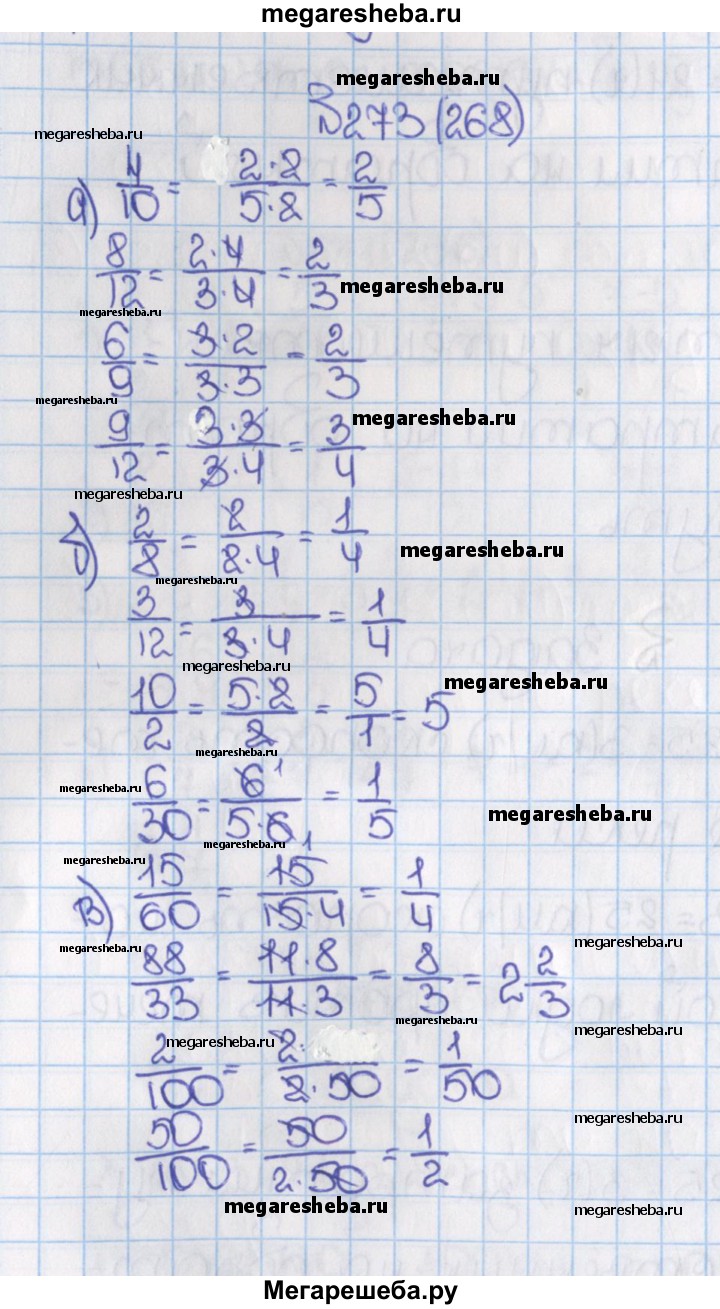 megaresheba.ru
megaresheba.ru
№273 (268)
megaresheba.ru
а) 4/10 = 2·2/5·2 = 2/5
8/12 = 2·4/3·4 = 2/3 megaresheba.ru
megaresheba.ru
6/9 = 3·2/3·3 = 2/3
megaresheba.ru
megaresheba.ru
9/12 = 3·3/3·4 = 3/4
megaresheba.ru
б) 2/8 = 2/2·4 = 1/4 megaresheba.ru
megaresheba.ru
3/12 = 3/3·4 = 1/4
megaresheba.ru
megaresheba.ru
10/2 = 5·2/2 = 5/1 = 5
megaresheba.ru
megaresheba.ru
6/30 = 6 1/5·6 1 = 1/5 megaresheba.ru
megaresheba.ru
megaresheba.ru
в) 15/60 = 15/15·4 = 1/4
megaresheba.ru
megaresheba.ru
88/33 = 11·8/11·3 = 8/3 = 2 2/3
megaresheba.ru
megaresheba.ru
megaresheba.ru
2/100 = 2·/2·50 = 1/50
megaresheba.ru
50/100 = 50/2·50 = 1/2
megaresheba.ru
megaresheba.ru
Мегарешеба.ру